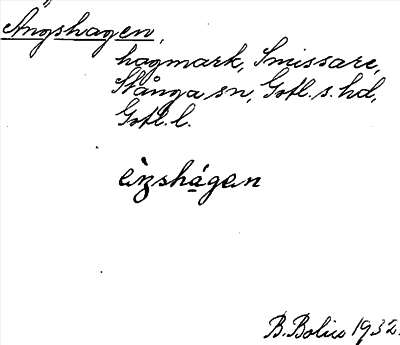 Ängshagen,
hagmark, Smissare,
Stånga sn, Gotl. s. hd,
Gotl. l.
èŋshágen
B. Bolin 1932.